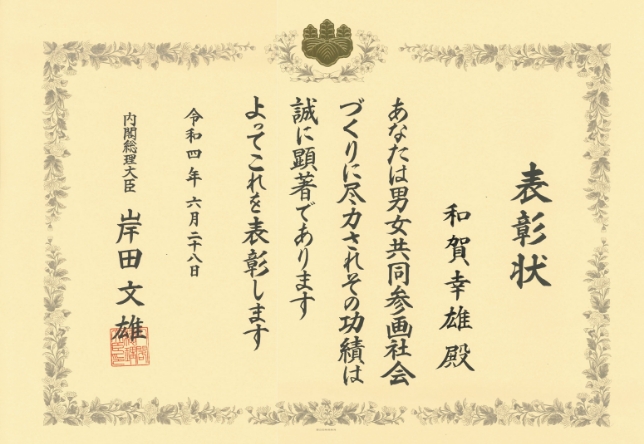 表彰状
和賀幸雄殿
あなたは男女共同参画社会
づくりに尽力されその功績は
誠に顕著であります
よってこれを表彰します
令和四年六月二十八日
内閣総理大臣 岸田文雄